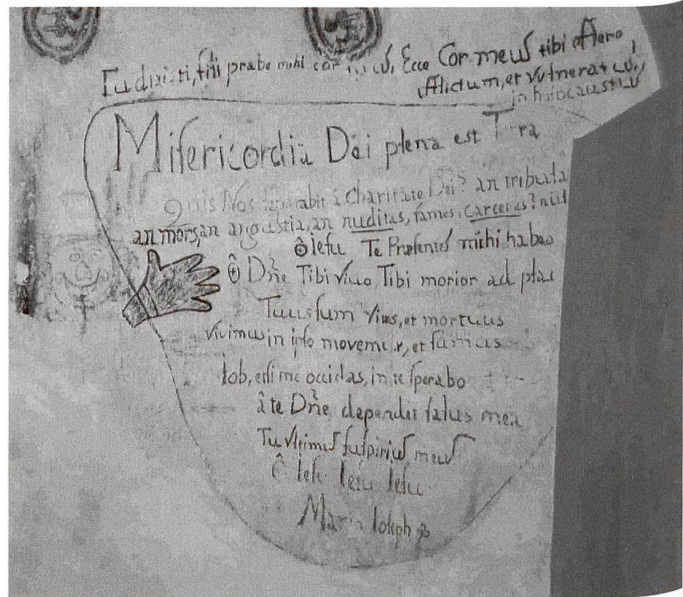 Tu dixisti, fili prabe mihi cor tuum, Ecce Cor meuʃ tibi offero,
Afflictum, et Vulneratuʒ,
in holocaustuʒ
Miʃericordia Dei plena est Terra
Quis Nos separabit à Charitate Dei? an tribula
an mors, an angustia, an nuditas, fames, carceres? nūs
ôIeʃu Te Preʃenteʒ mihi habeo
ô Dñe Tibi vivo Tibi morior ad
Tuus ʃum Vivus, et mortuus
Vivimus in ipʃo movemur, et ʃumus
Iob, etʃi me occidas, in te ʃperabo
àte Dñe ʃalus mea
Tu Vltimuʃ ʃuʃpiriuʃ meuʃ
Ô Ieʃu Ieʃu Ieʃu
Maria Ioʃeph